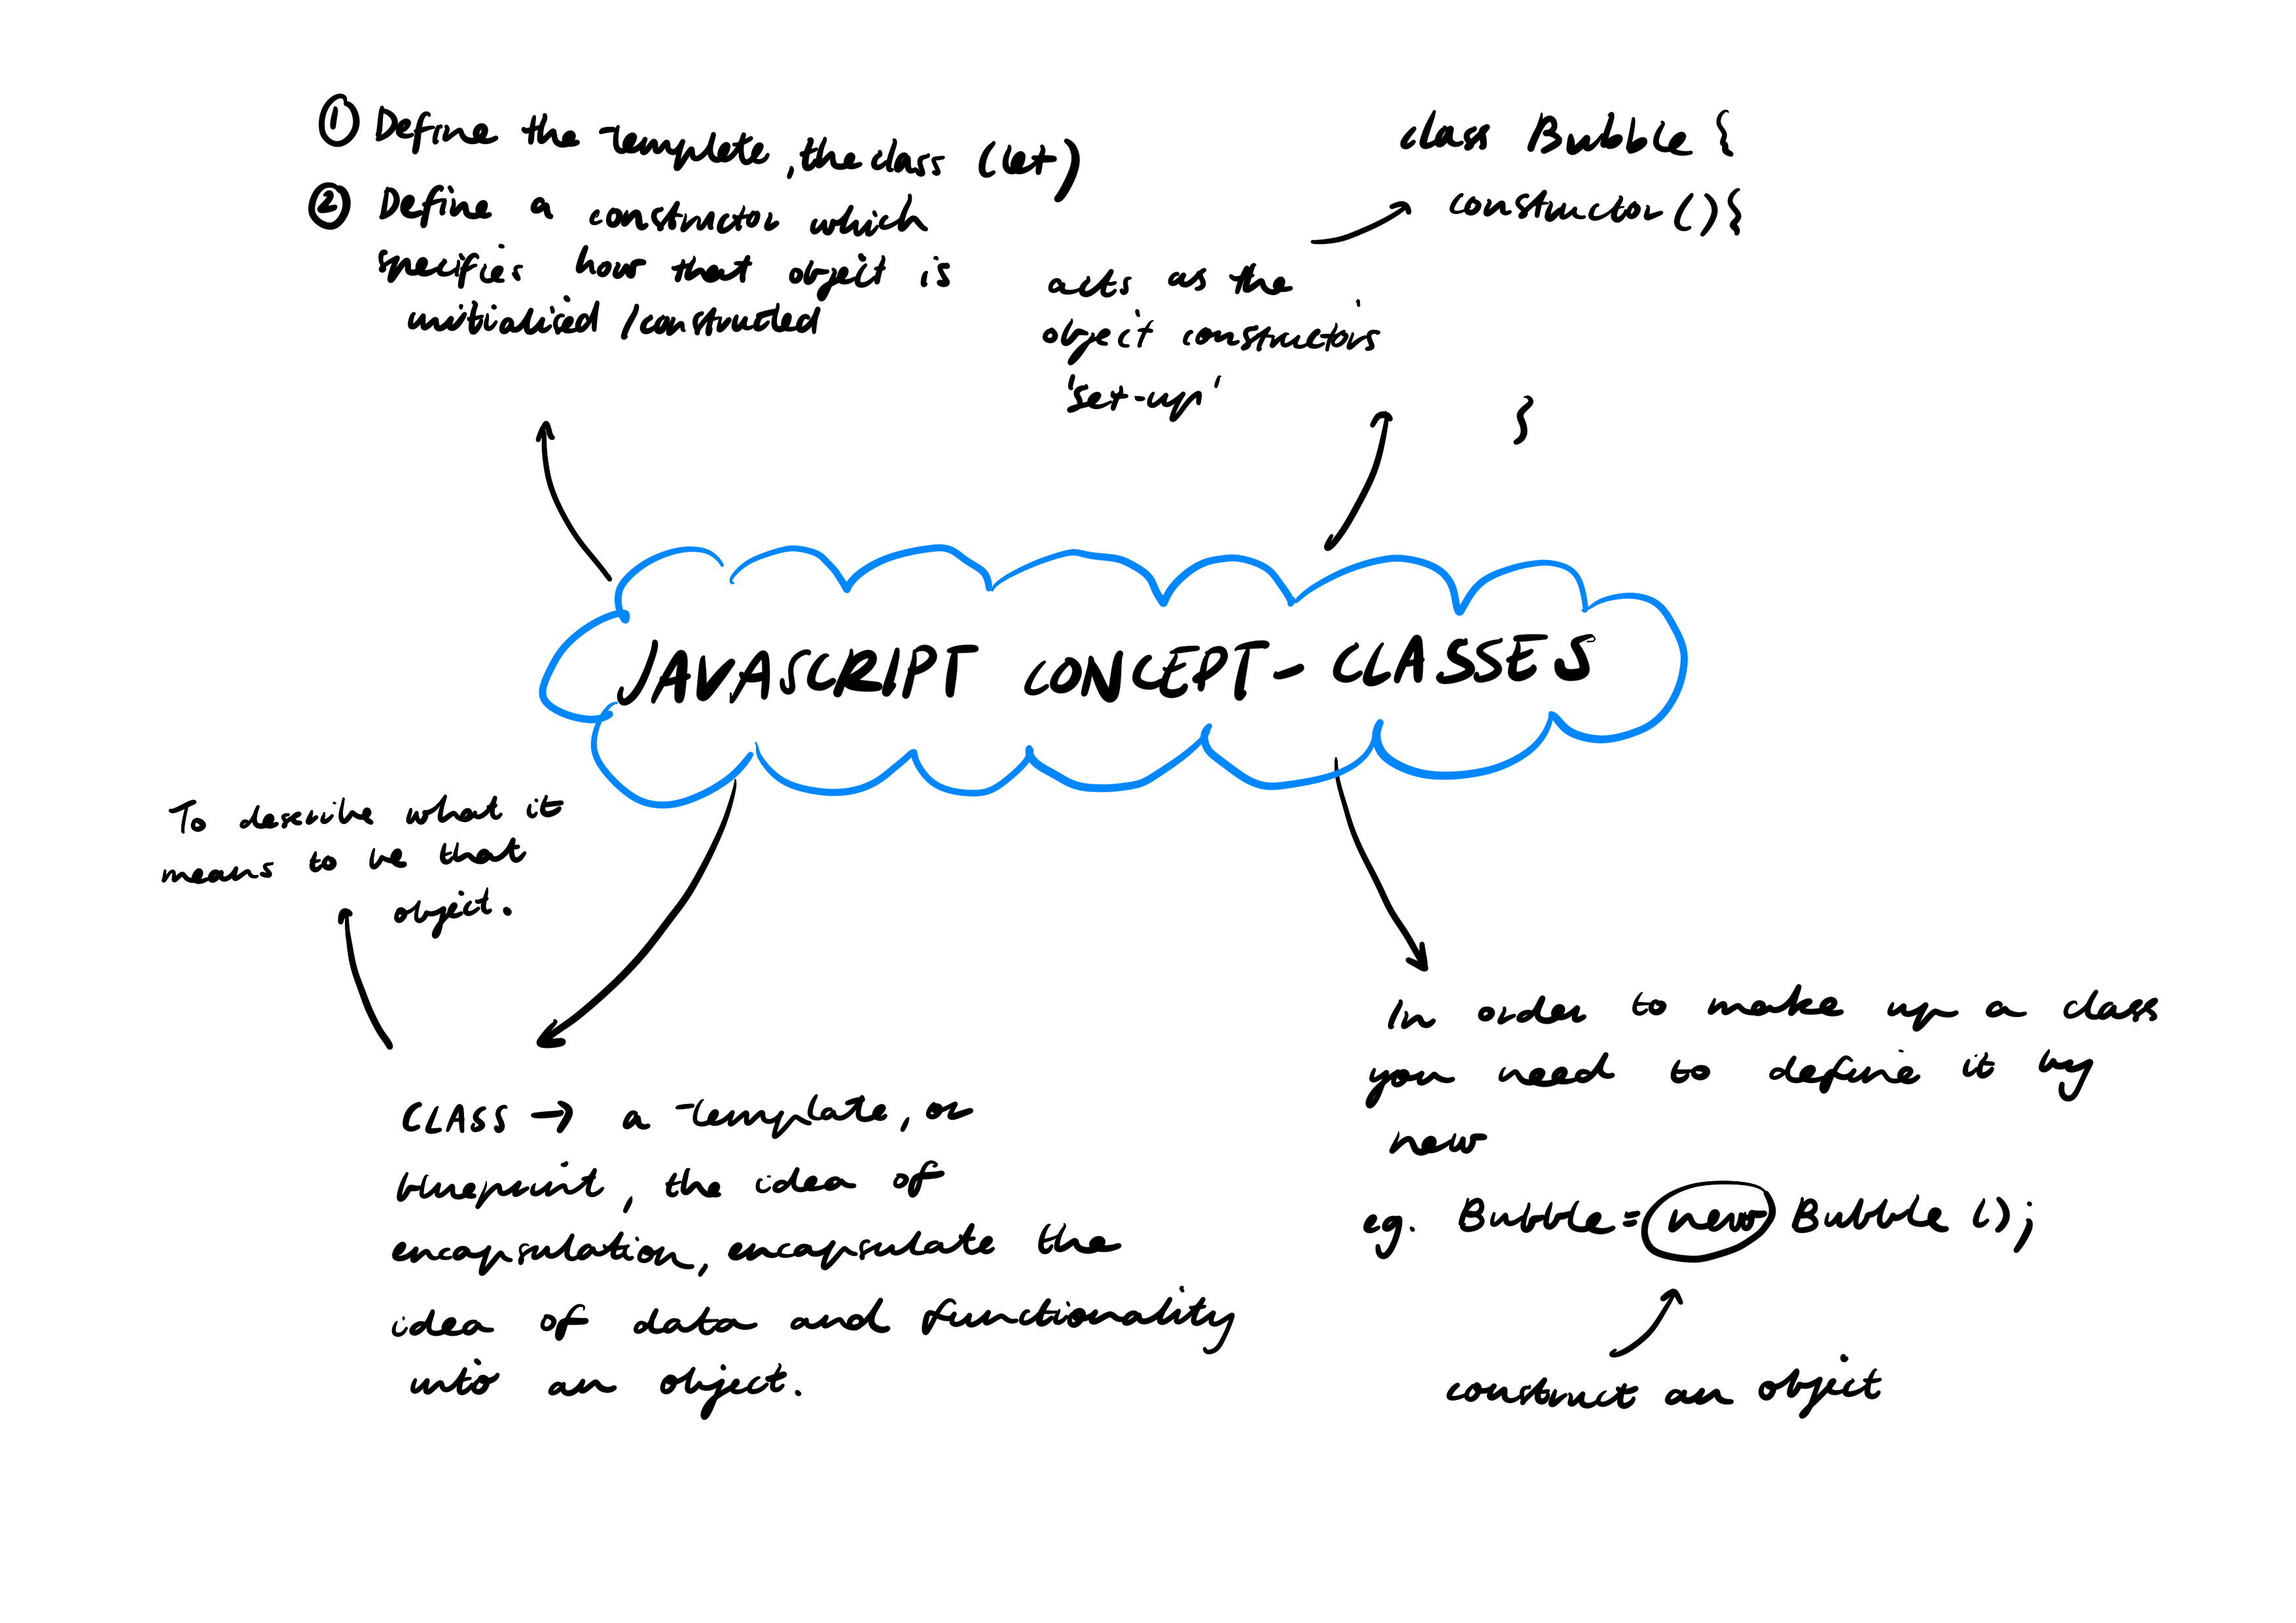 ① Define the template, the class (let)
② Define a constructor which
specifies how that object is
initialised / constructed
class Bubble {
constructor () {
acts as the
object constructors
'set-up'
}
JAVASCRIPT CONCEPT - CLASSES
To describe what it
means to be that
object.
CLASS → a template, or
blueprint, the idea of
encapsulation, encapsulate the
idea of data and functionality
into an object.
In order to make up a class
you need to define it by
new
eg. Bubble = new Bubble ();
construct an object